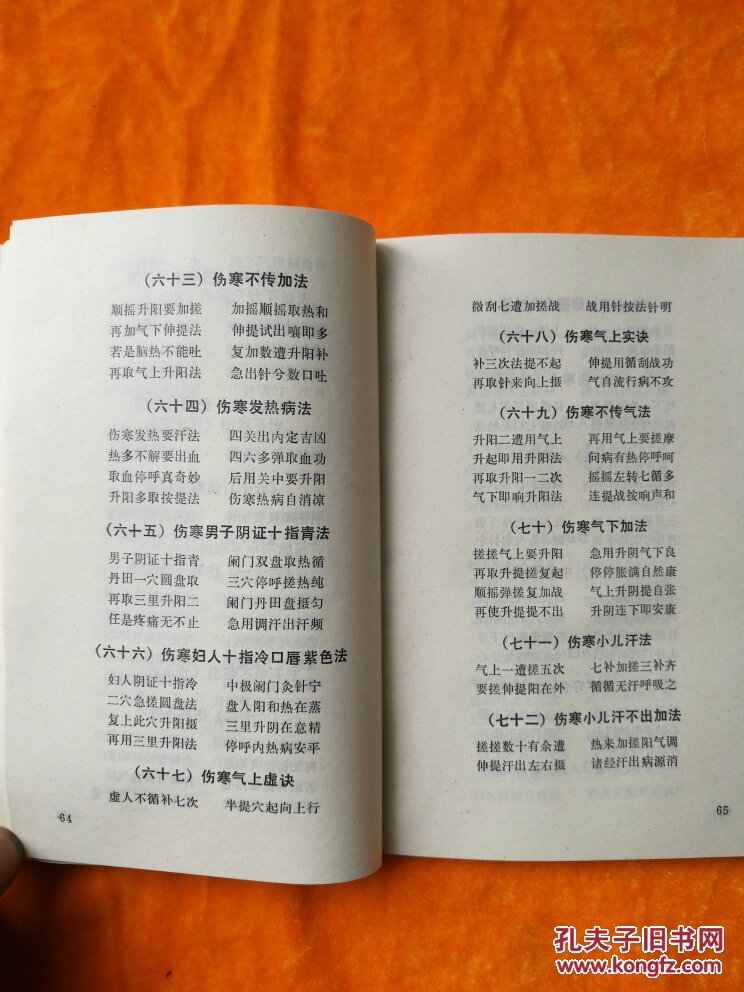 （六十三）伤寒不传加法
顺摇升阳要加搓　加摇顺摇取热和
再加气下伸提法　伸提试出嚷即多
若是脑热不能吐　复加数遭升阳补
再取气上升阳法　急出针兮数口吐
（六十四）伤寒发热病法
伤寒发热要汗法　四关出内定吉凶
热多不解要出血　四六多弹取血功
取血停呼真奇妙　后用关中要升阳
升阳多取按提法　伤寒热病自消凉
（六十五）伤寒男子阴证十指青法
男子阴证十指青　阑门双盘取热循
丹田一穴圆盘取　三穴停呼搓热纯
再取三里升阳二　阑门丹田盘摄匀
任是疼痛无不止　急用调汗出汗频
（六十六）伤寒妇人十指冷口唇紫色法
妇人阴证十指冷　中极阑门灸针宁
二穴急搓圆盘法　盘人阳和热在蒸
复上此穴升阳摄　三里升阴在意精
再用三里升阳法　停呼内热病安平
（六十七）伤寒气上虚诀
虚人不循补七次　半提穴起向上行
64
微刮七遭加搓战　战用针按法针明
（六十八）伤寒气上实诀
补三次法提不起　伸提用循刮战功
再取针来向上摄　气自流行病不攻
（六十九）伤寒不传气法
升阳二遭用气上　再用气上要搓摩
升起即用升阳法　问病有热停呼呵
再取升阳一二次　摇摇左转七循多
气下即响升阳法　连提战按响声和
（七十）伤寒气下加法
搓搓气上要升阳　急用升阴气下良
再取升提搓复起　停停胀满自然康
顺摇弹搓复加战　气上升阴提自张
再使升提提不出　升阴连下即安康
（七十一）伤寒小儿汗法
气上一遭搓五次　七补加搓三补齐
要搓伸提阳在外　循循无汗呼吸之
（七十二）伤寒小儿汗不出加法
搓搓数十有余遭　热来加搓阳气调
伸提汗出左右摄　诸经汗出病源消
65
孔夫子旧书网
www.kongfz.com